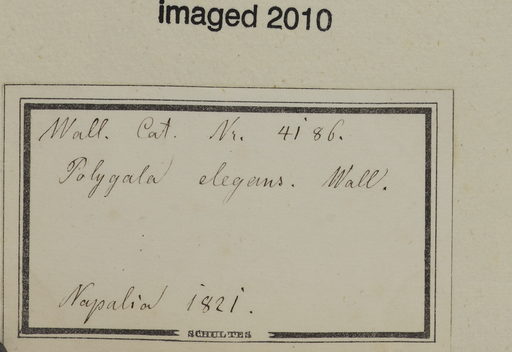 imaged 2010
Wall. Cat. Nr. 4186.
Polygala elegans. Wall.
Napalia 1821.
SCHULTES